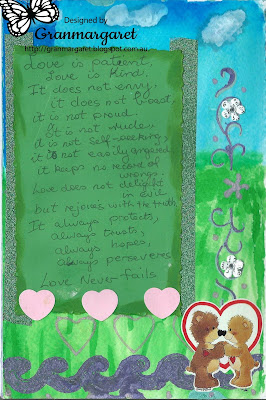 Designed by
Granmargaret
http://granmargaret.blogspot.com.au
Love is patient,
Love is Kind.
It does not envy,
it does not boast,
it is not proud.
It is not rude,
it is not Self-seeking,
it is not easily angered,
it keeps no record of
wrongs.
Love does not delight
in evil
but rejoices with the truth.
It always protects,
always trusts,
always hopes,
always perseveres
Love Never fails